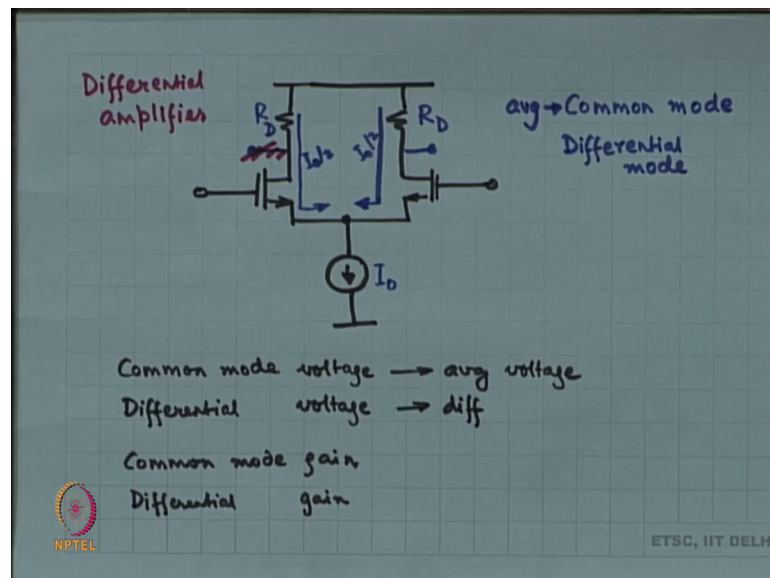 Differential
amplifies
R_D
R_D
I_0/2
I_0/2
I_0
avg → Common mode
Differential
mode
Common mode voltage → avg voltage
Differential voltage → diff
Common mode gain
Differential gain
NPTEL
ETSC, IIT DELH